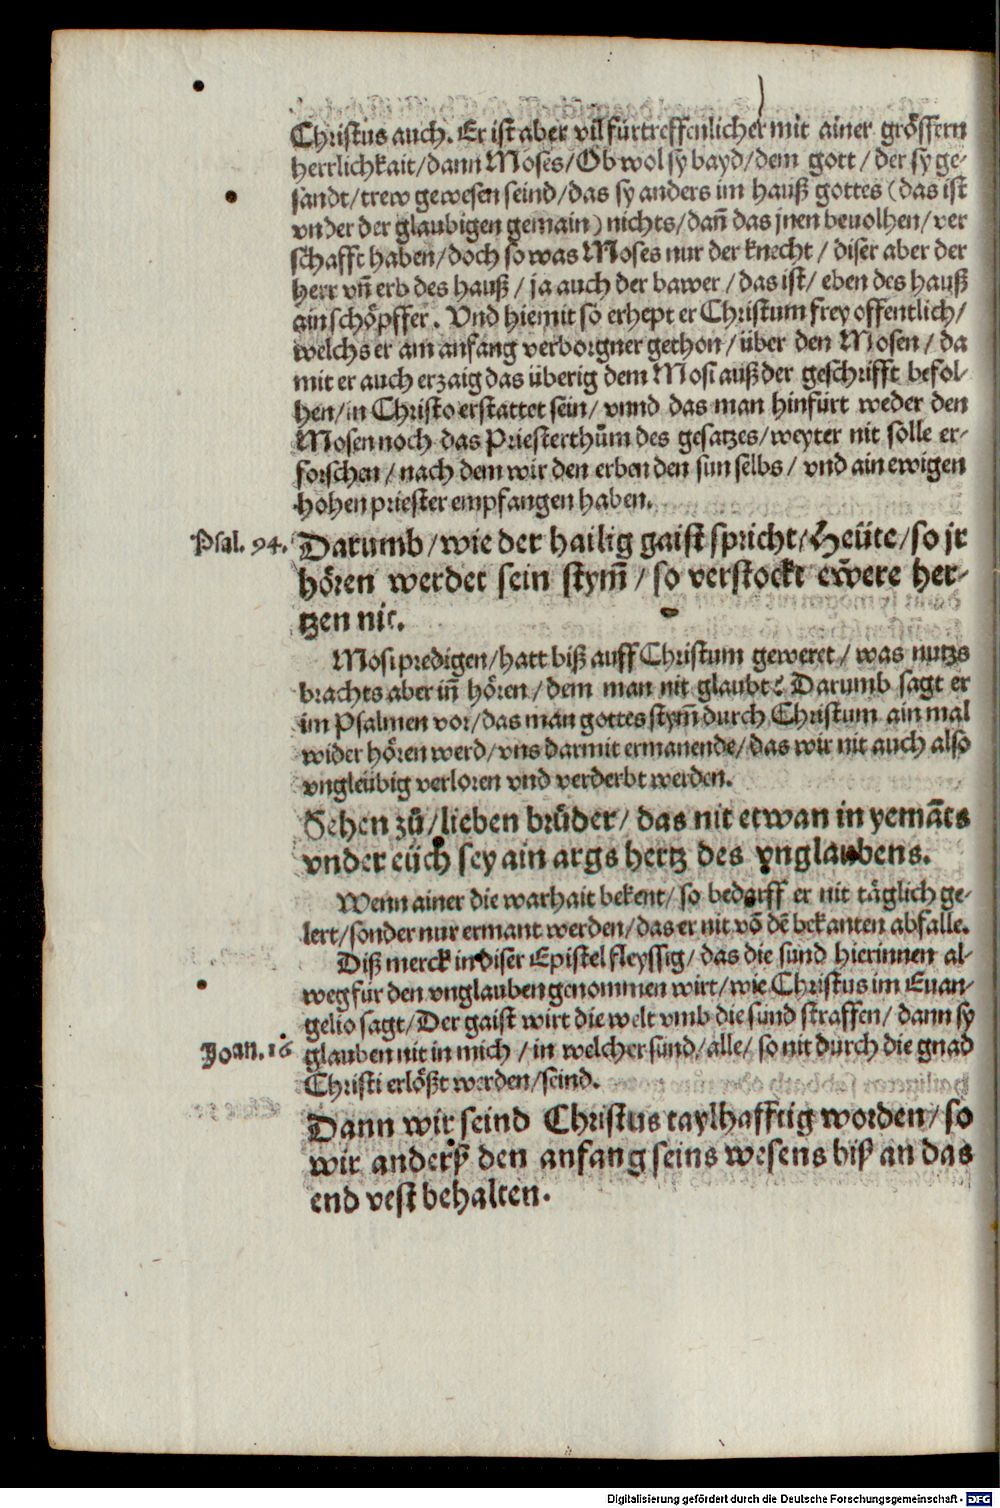 Christus auch. Er ist aber vil fürtreffenlicher mit ainer grössern
herrlichkait/dann Moses/Ob wol sy bayd/dem gott/der sy ge-
sandt/trew gewesen seind/das sy anders im hauß gottes (das ist
vnder der glaubigen gemain) nichts/dañ das jnen beuolhen/ver
schafft haben/doch so was Moses nur der knecht/diser aber der
herr vñ erb des hauß/ja auch der bawer/das ist/eben des hauß
ain schöpffer. Vnd hiemit so erhept er Christum frey offentlich/
welchs er am anfang verborgner gethon/über den Mosen/da
mit er auch erzaig das überig dem Mosi auß der geschrifft befol-
hen/in Christo erstattet sein/vnnd das man hinfürt weder den
Mosen noch das Priesterthům des gesatzes/weyter nit solle er-
forschen/nach dem wir den erben den sun selbs/vnd ain ewigen
hohen priester empfangen haben.
Psal. 94. Darumb/wie der hailig gaist spricht/Heüte/so jr
hören werdet sein stym̃/so verstockt ewere her-
tzen nit.
Mosi predigen/hatt biß auff Christum geweret/was nutzs
brachts aber iñ hören/dem man nit glaubt? Darumb sagt er
im Psalmen vor/das man gottes stym̃ durch Christum ain mal
wider hören werd/vns darmit ermanende/das wir nit auch also
vngleubig verloren vnd verderbt werden.
Sehen zů/lieben brůder/das nit etwan in yemãts
vnder eüch sey ain args hertz des vnglaubens.
Wenn ainer die warhait bekent/so bedarff er nit täglich ge-
lert/sonder nur ermant werden/das er nit võ dẽ bekanten abfalle.
Diß merck in diser Epistel fleyssig/das die sünd hierinnen al-
weg für den vnglauben genommen wirt/wie Christus im Euan-
gelio sagt/Der gaist wirt die welt vmb die sünd straffen/dann sy
Joan. 16 glauben nit in mich/in welcher sünd/alle/so nit durch die gnad
Christi erlößt werden/seind.
Dann wir seind Christus taylhafftig worden/so
wir anderß den anfang seins wesens biß an das
end vest behalten.
Digitalisierung gefördert durch die Deutsche Forschungsgemeinschaft - DFG